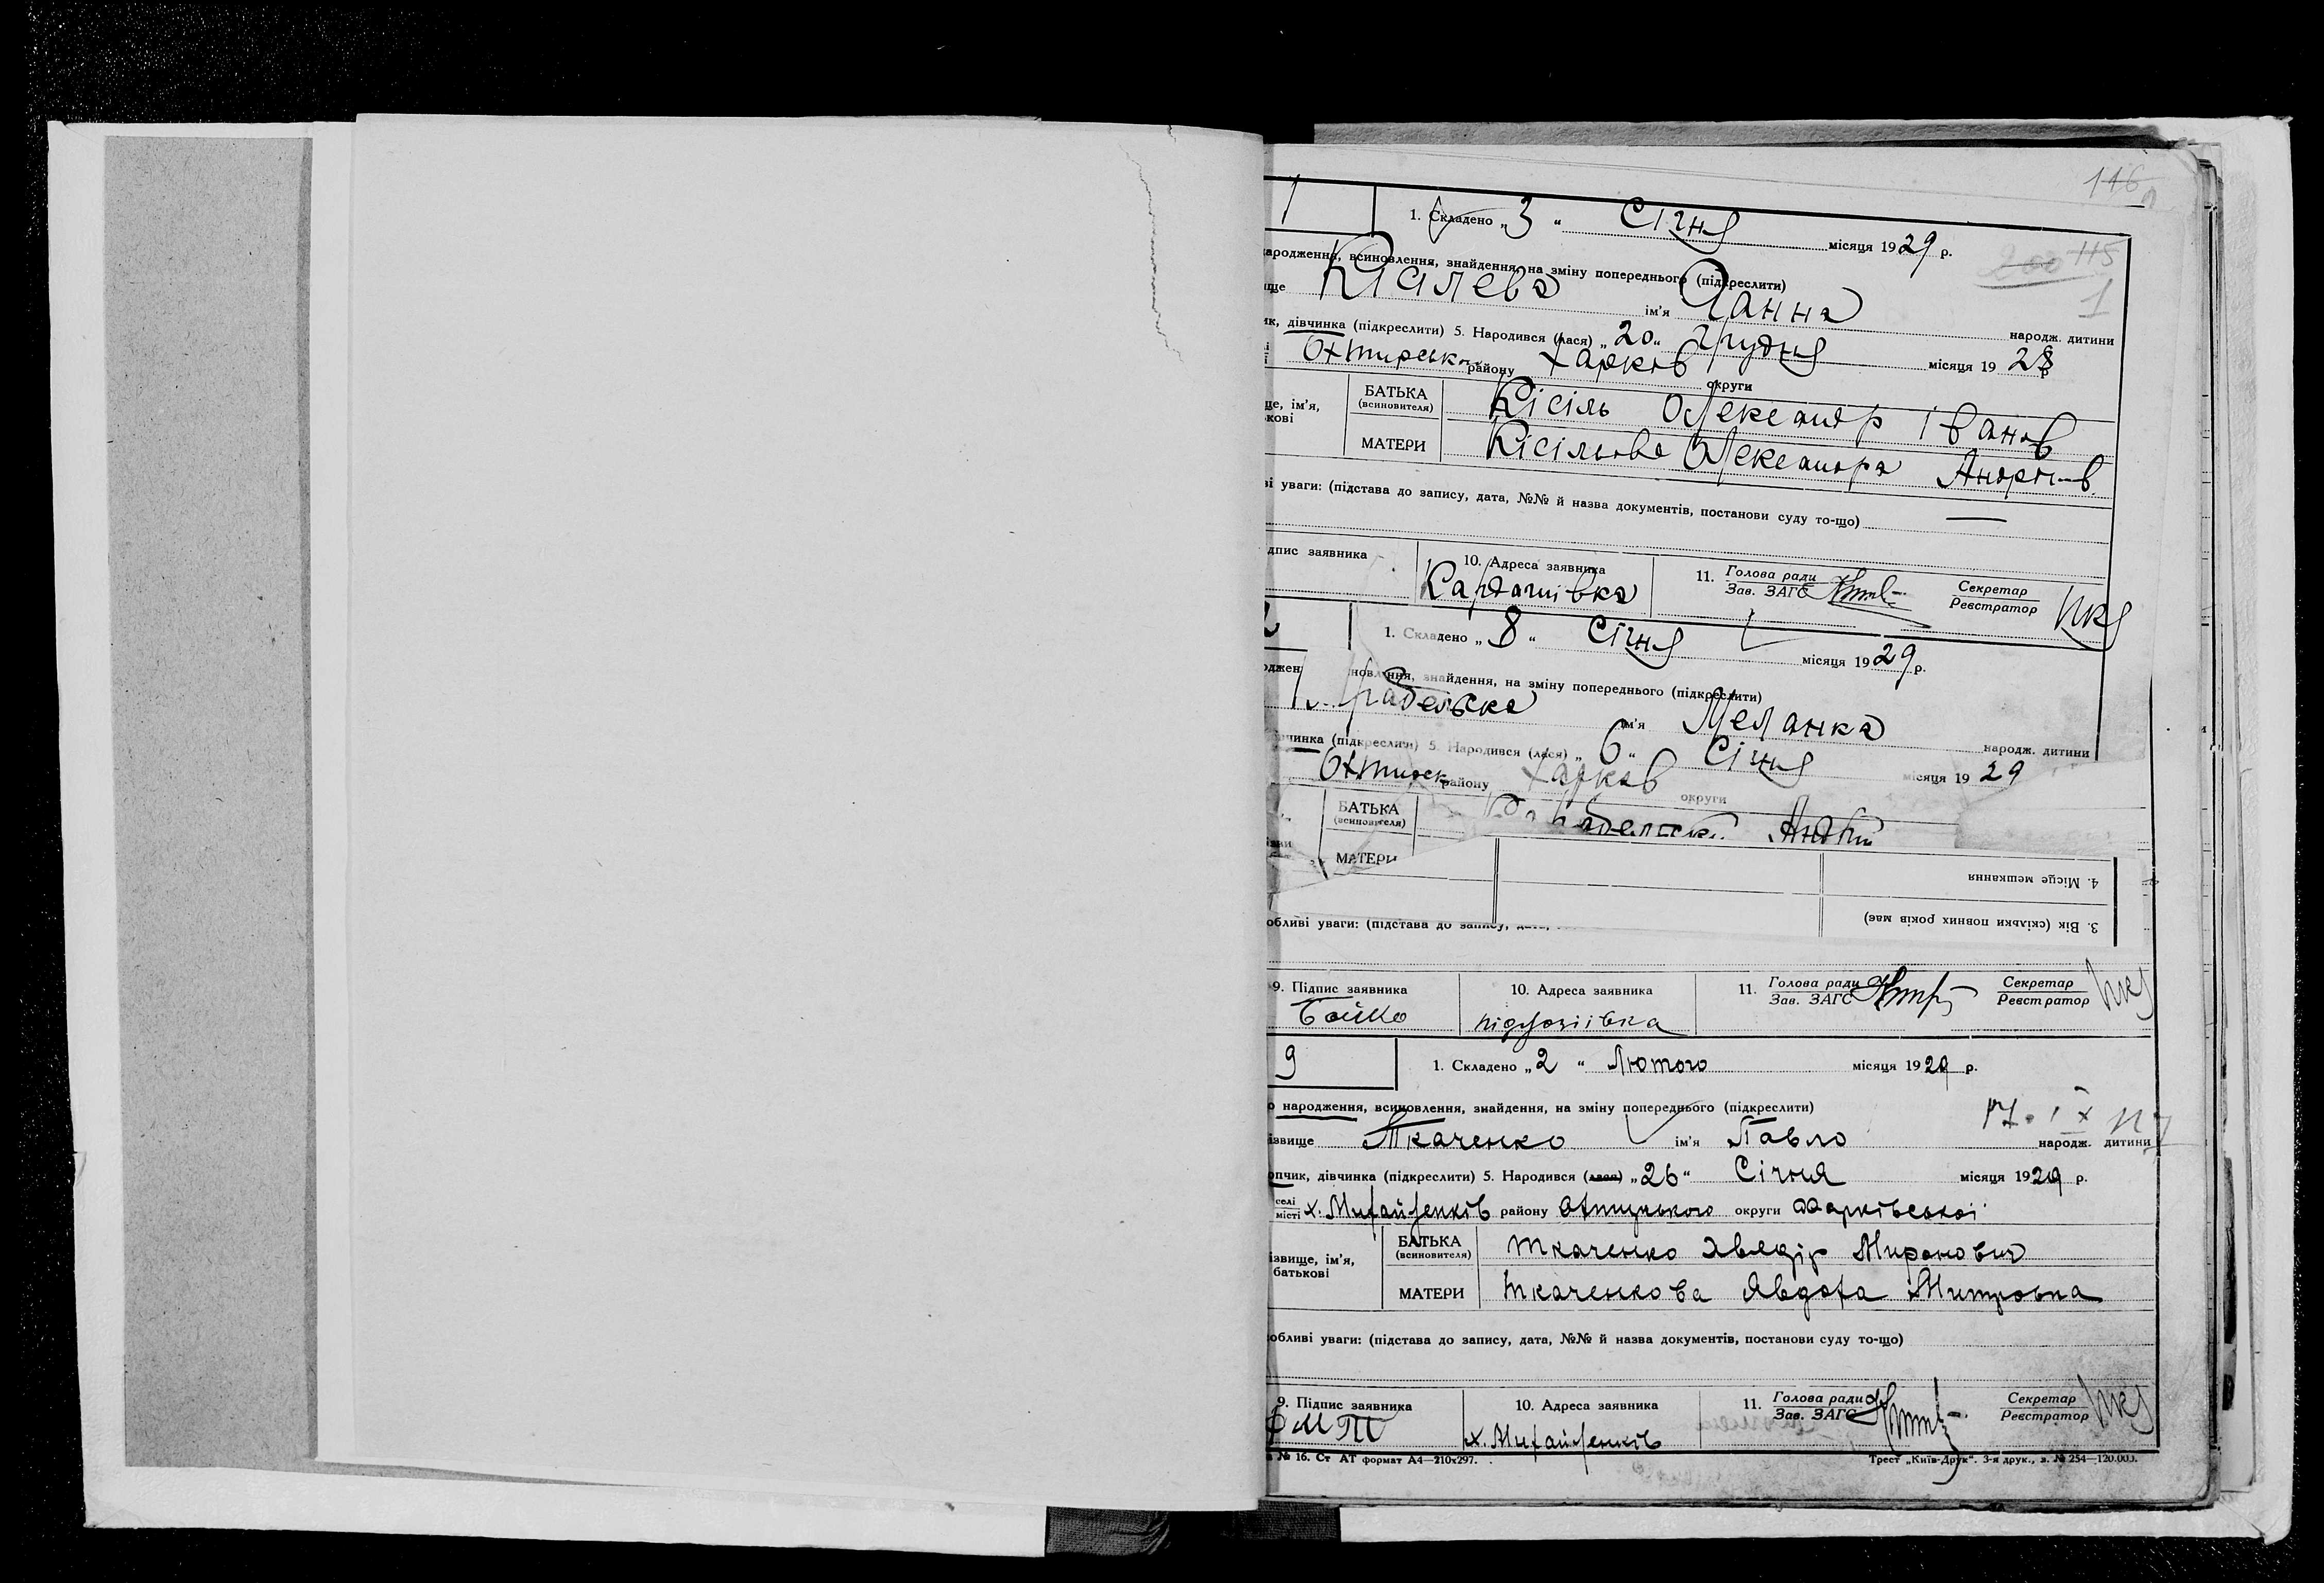 116
115
1
1
1. Складено „3“ Січня місяця 1929 р.
народження, всиновлення, знайдення, на зміну попереднього (підкреслити)
Кісілева ім'я Ганна народж. дитини
дівчинка (підкреслити) 5. Народився (лася) „20“ Грудня місяця 1928 р
Охтирськ району Харків округи
ім'я,
БАТЬКА
(всиновителя)
Кісіль Олександр Іванов
МАТЕРИ
Кісільова Олександра Андріїв.
уваги: (підстава до запису, дата, №№ й назва документів, постанови суду то-що) —
заявника
10. Адреса заявника
Кардашівка
11. Голова ради
Зав. ЗАГС
Секретар
Реєстратор
2
1. Складено „8“ Січня місяця 1929 р.
знайдення, на зміну попереднього (підкреслити)
ім'я Меланка народж. дитини
(підкреслити) 5. Народився (лася) „6“ Січня місяця 19 29
Охтирськ району Харків округи
БАТЬКА
(всиновителя)
Андрій
МАТЕРИ
4. Місце мешкання
3. Вік (скільки повних років має)
уваги: (підстава до запису,
9. Підпис заявника
Бойко
10. Адреса заявника
11. Голова ради
Зав. ЗАГС
Секретар
Реєстратор
9
1. Складено „2“ Лютого місяця 1929 р.
народження, всиновлення, знайдення, на зміну попереднього (підкреслити)
Ткаченко ім'я Павло народж. дитини
дівчинка (підкреслити) 5. Народився (лася) „26“ Січня місяця 1929 р.
селі
місті х. Михайленків району Охтирського округи Харківської
ім'я,
батькові
БАТЬКА
(всиновителя)
Ткаченко Хведір Миронович
МАТЕРИ
Ткаченкова Явдоха Митровна
уваги: (підстава до запису, дата, №№ й назва документів, постанови суду то-що)
9. Підпис заявника
10. Адреса заявника
х. Михайленків
11. Голова ради
Зав. ЗАГС
Секретар
Реєстратор
№ 16. Ст АТ формат А4—210х297.
Трест „Київ-Друк“. 3-я друк., з. № 254—120.000.